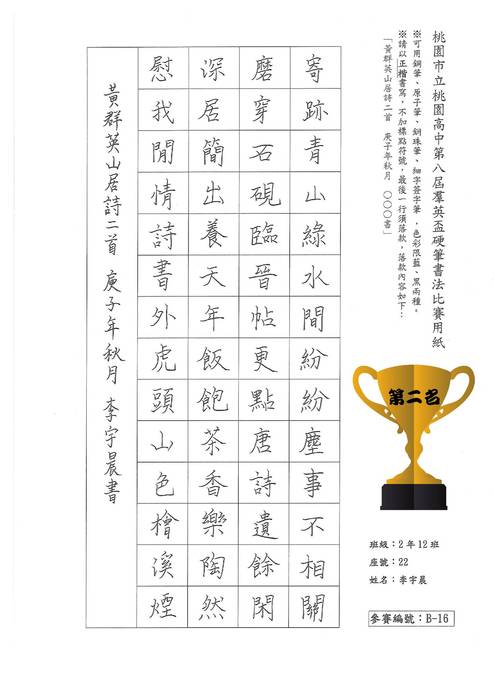 桃園市立桃園高中第八屆羣英盃硬筆書法比賽用紙
※可用鋼筆、原子筆、鋼珠筆、細字簽字筆，色彩限藍、黑兩種。
※請以正楷書寫，不加標點符號，最後一行須落款，落款內容如下：
「黃群英山居詩二首 庚子年秋月 〇〇〇書」
寄跡青山綠水間紛紛塵事不相關
磨穿石硯臨晉帖更點唐詩遺餘閑
深居簡出養天年飯飽茶香樂陶然
慰我閒情詩書外虎頭山色檜溪煙
黃群英山居詩二首 庚子年秋月 李宇晨書
第二名
班級：2年12班
座號：22
姓名：李宇晨
參賽編號：B-16